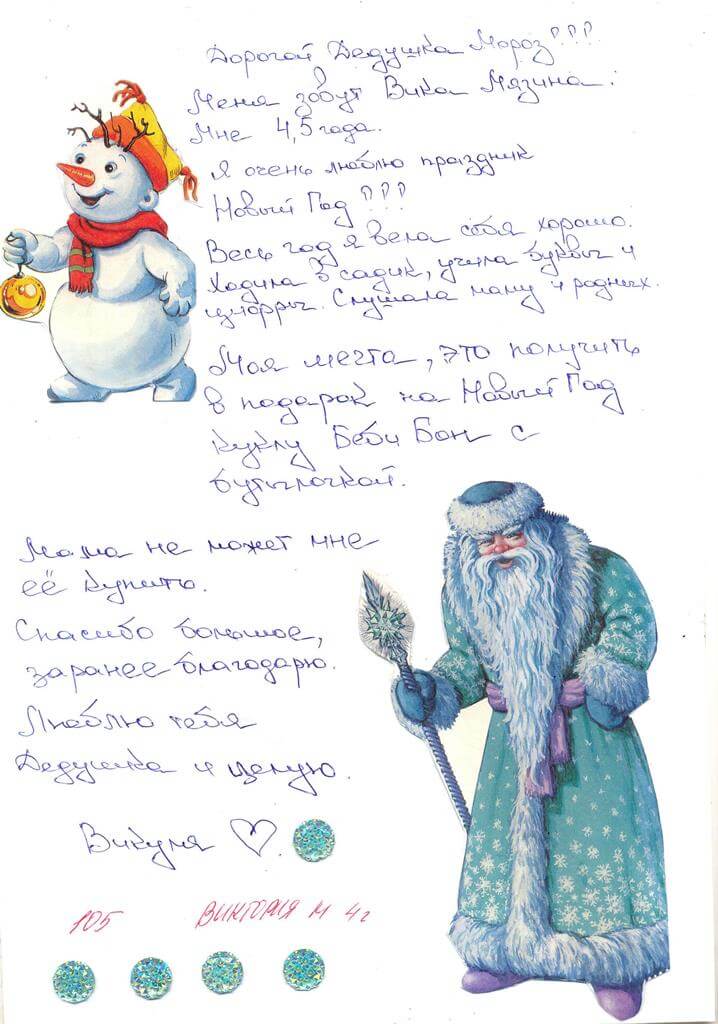 Дорогой Дедушка Мороз!!!
Меня зовут Вика Мязина.
Мне 4,5 года.
Я очень люблю праздник
Новый Год!!!
Весь год я вела себя хорошо.
Ходила в садик, учила буквы и
цифры. Слушала маму и родных.
Моя мечта, это получить
в подарок на Новый Год
куклу Беби Бон с
бутылочкой.
Мама не может мне
её купить.
Спасибо большое,
заранее благодарю.
Люблю тебя
Дедушка и целую.
Викуля ♡.
105 ВИКТОРИЯ М 4г